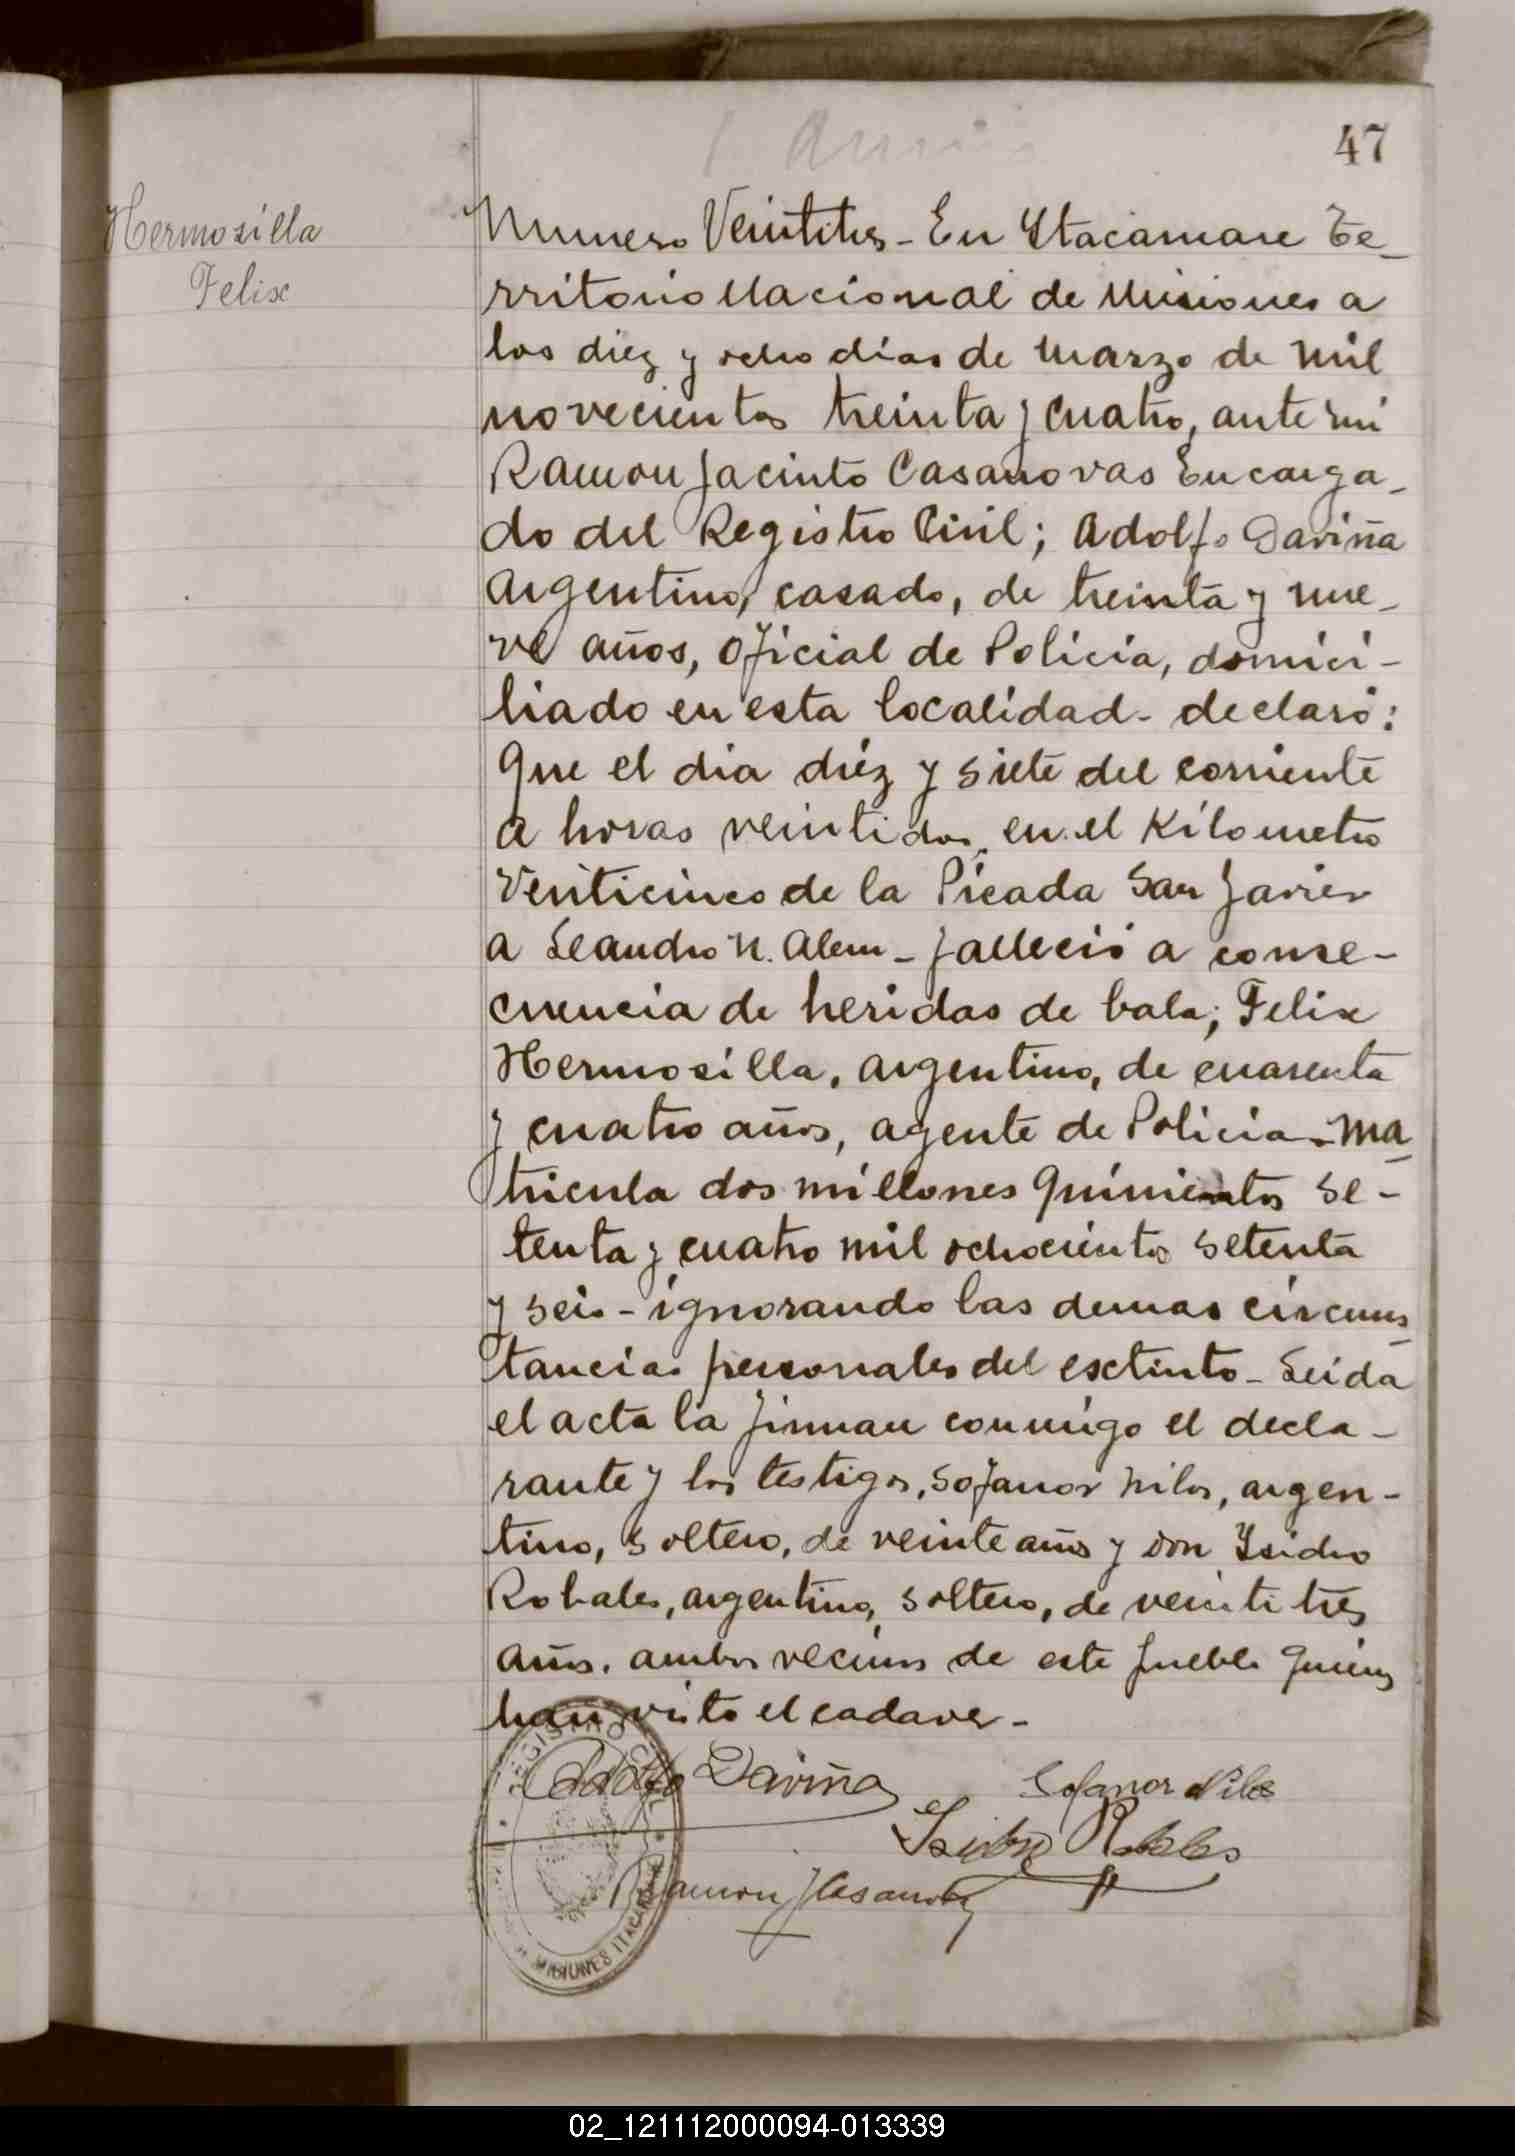 47
Hermosilla
Felix
Numero Veintitres - En Itacaruare Te-
rritorio Nacional de Misiones a
los diez y ocho dias de Marzo de mil
novecientos treinta y cuatro, ante mi
Ramon Jacinto Casanovas Encarga-
do del Registro Civil; Adolfo Daviña
argentino, casado, de treinta y nue-
ve años, oficial de Policia, domici-
liado en esta localidad - declaró:
Que el dia diez y siete del corriente
a horas veintidos, en el Kilometro
Veinticinco de la Picada San Javier
a Leandro N. Alem - falleció a conse-
cuencia de heridas de bala; Felix
Hermosilla, argentino, de cuarenta
y cuatro años, agente de Policia - Ma-
tricula dos millones quinientos se-
tenta y cuatro mil ochocientos setenta
y seis - ignorando las demas circuns-
tancias personales del esctinto - Leida
el acta la firman conmigo el decla-
rante y los testigos, Sofanor Nilos, argen-
tino, soltero, de veinte años y don Isidro
Robales, argentino, soltero, de veinti tres
años. ambos vecinos de este pueblo quienes
han visto el cadaver -
Adolfo Daviña
Sofanor Nilos
Isidro Robales
Ramon J Casanovas
REGISTRO CIVIL
MISIONES ITACARUARE
02_121112000094-013339